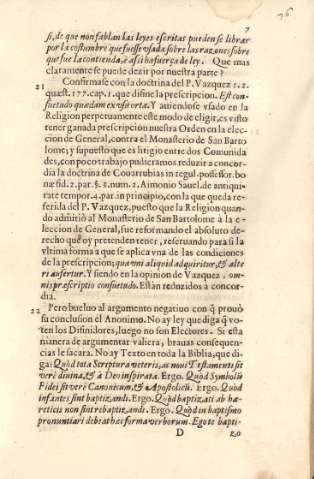 76
7
si, de que non fablan las leyes escritas pueden se librar
por la costumbre que fuesse vsada sobre las razones sobre
que fue la contienda, è assi ha fuerza de ley. Que mas
claramente se puede dezir por nuestra parte?
21 Confirmase con la doctrina del P. Vazquez 1.2.
quæst. 177. cap. 1. que difine la prescripcion. Est con
suetudo quædam ex vsu orta. Y auiendose vsado en la
Religion perpetuamente este modo de eligir, es visto
tener ganada prescripcion nuestra Orden en la elec-
cion de General, contra el Monasterio de San Barto
lome; y supuesto que es litigio entre dos Comunida
des, con poco trabajo pudieramos reduzir a concor-
dia la doctrina de Couarrubias in regul. possessor. bo
næ fid. 2. par. §. 2. num. 2. Aimonio Sauel. de antiqui-
tate tempor. 4. par. in principio, con la que queda re-
ferida del P. Vazquez, puesto que la Religion quan-
do admitiò al Monasterio de San Bartolome à la e-
leccion de General, fue reformando el absoluto de-
recho que oy pretenden tener, reseruando para si la
vltima forma a que se aplica vna de las condiciones
de la prescripcion; qua vni aliquid adquiritur, & alte
ri aufertur. Y siendo en la opinion de Vazquez. om-
nis præscriptio consuetudo. Estàn reduzidos à concor-
dia.
22 Pero bueluo al argumento negatiuo con q̃ prouò
su conclusion el Anonimo. No ay ley que diga q̃ vo-
ten los Difinidores, luego no son Electores. Si esta
manera de argumentar valiera, brauas consequen-
cias se sacara. No ay Texto en toda la Biblia, que di-
ga: Quòd tota Scriptura veteris, ac noui Testamenti sit
veri diuina, & à Deo inspirata. Ergo. Quòd Symbolũ
Fidei sit verè Canonicum, & Apostolicũ. Ergo. Quòd
infantes sint baptizandi. Ergo. Quòd baptizati ab hæ-
reticis non sint rebaptizandi. Ergo. Quòd in baptismo
pronuntiari debeat hæc forma verborum. Ego te bapti-
D zo